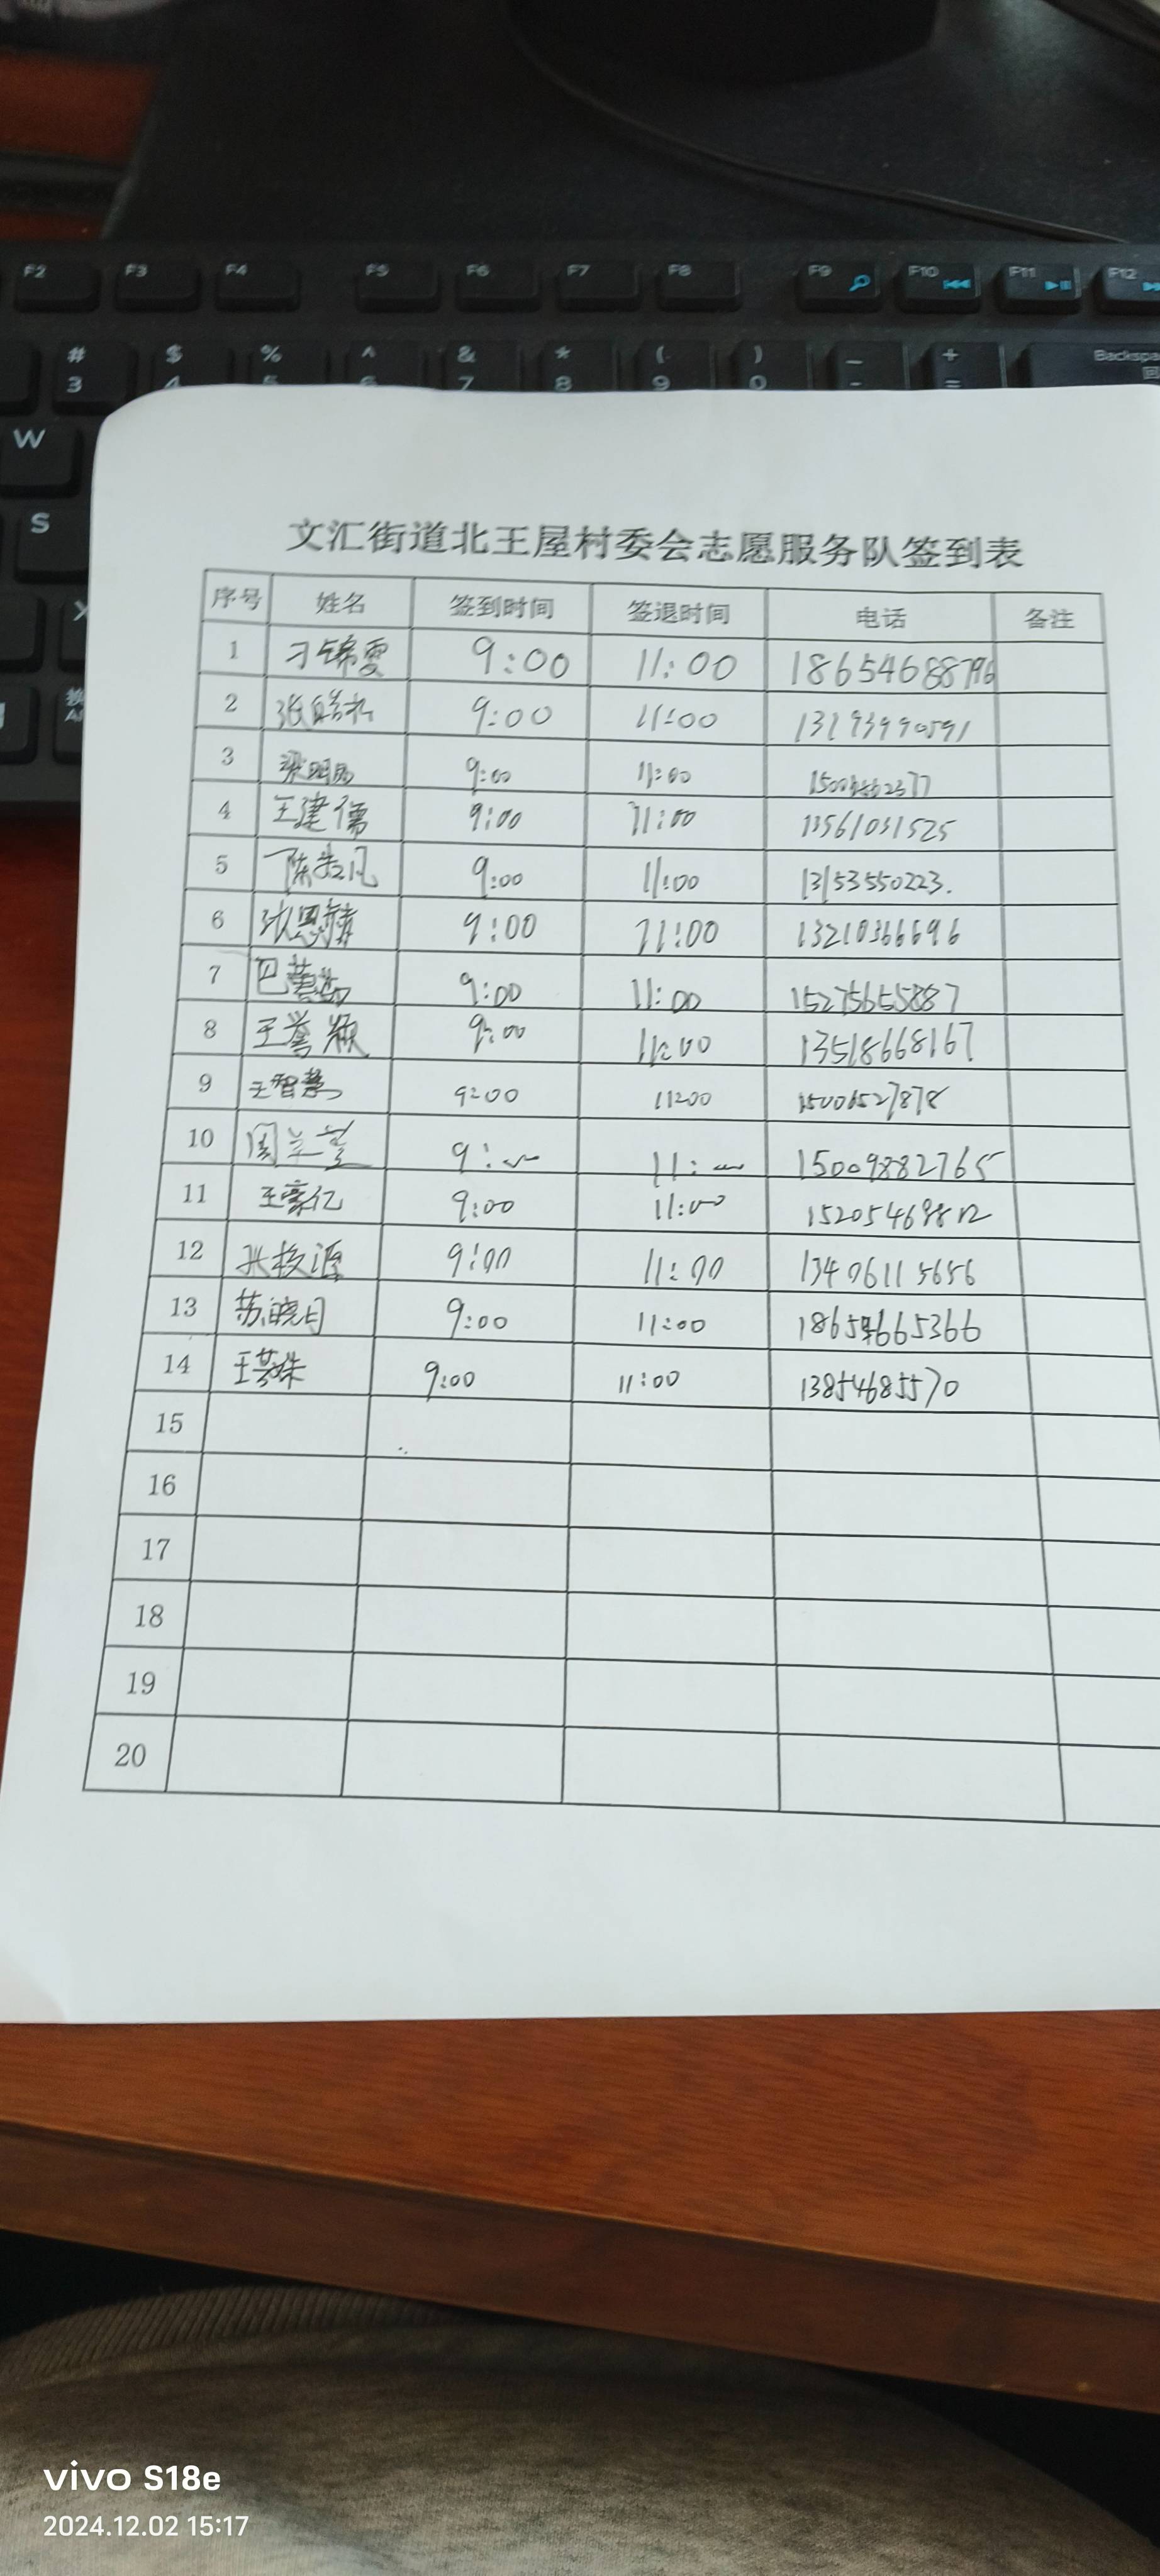 F2 F3 F4 F5 F6 F7 F8 F9 F10 F11 F12
# $ % ^ & * ( ) — +
3 4 5 6 7 8 9 0 - = Backspa
W
S
X
文汇街道北王屋村委会志愿服务队签到表
序号 姓名 签到时间 签退时间 电话 备注
1 刁锦雯 9:00 11:00 18654688796
2 9:00 11:00
3 梁明 9:00 11:00
4 王建儒 9:00 11:00 13561031525
5 陈 凡 9:00 11:00 13153550223.
6 张恩 9:00 11:00 13210366696
7 巴 9:00 11:00 15275655887
8 王誉颖 9:00 11:00 13518668167
9 王智慧 9:00 11:00 15006527878
10 周兰 9: 11: 15009882765
11 王豪亿 9:00 11:00 15205469812
12 源 9:00 11:00 13406115656
13 苏晓月 9:00 11:00 18654665366
14 王 姝 9:00 11:00 13854685570
15
16
17
18
19
20
vivo S18e
2024.12.02 15:17